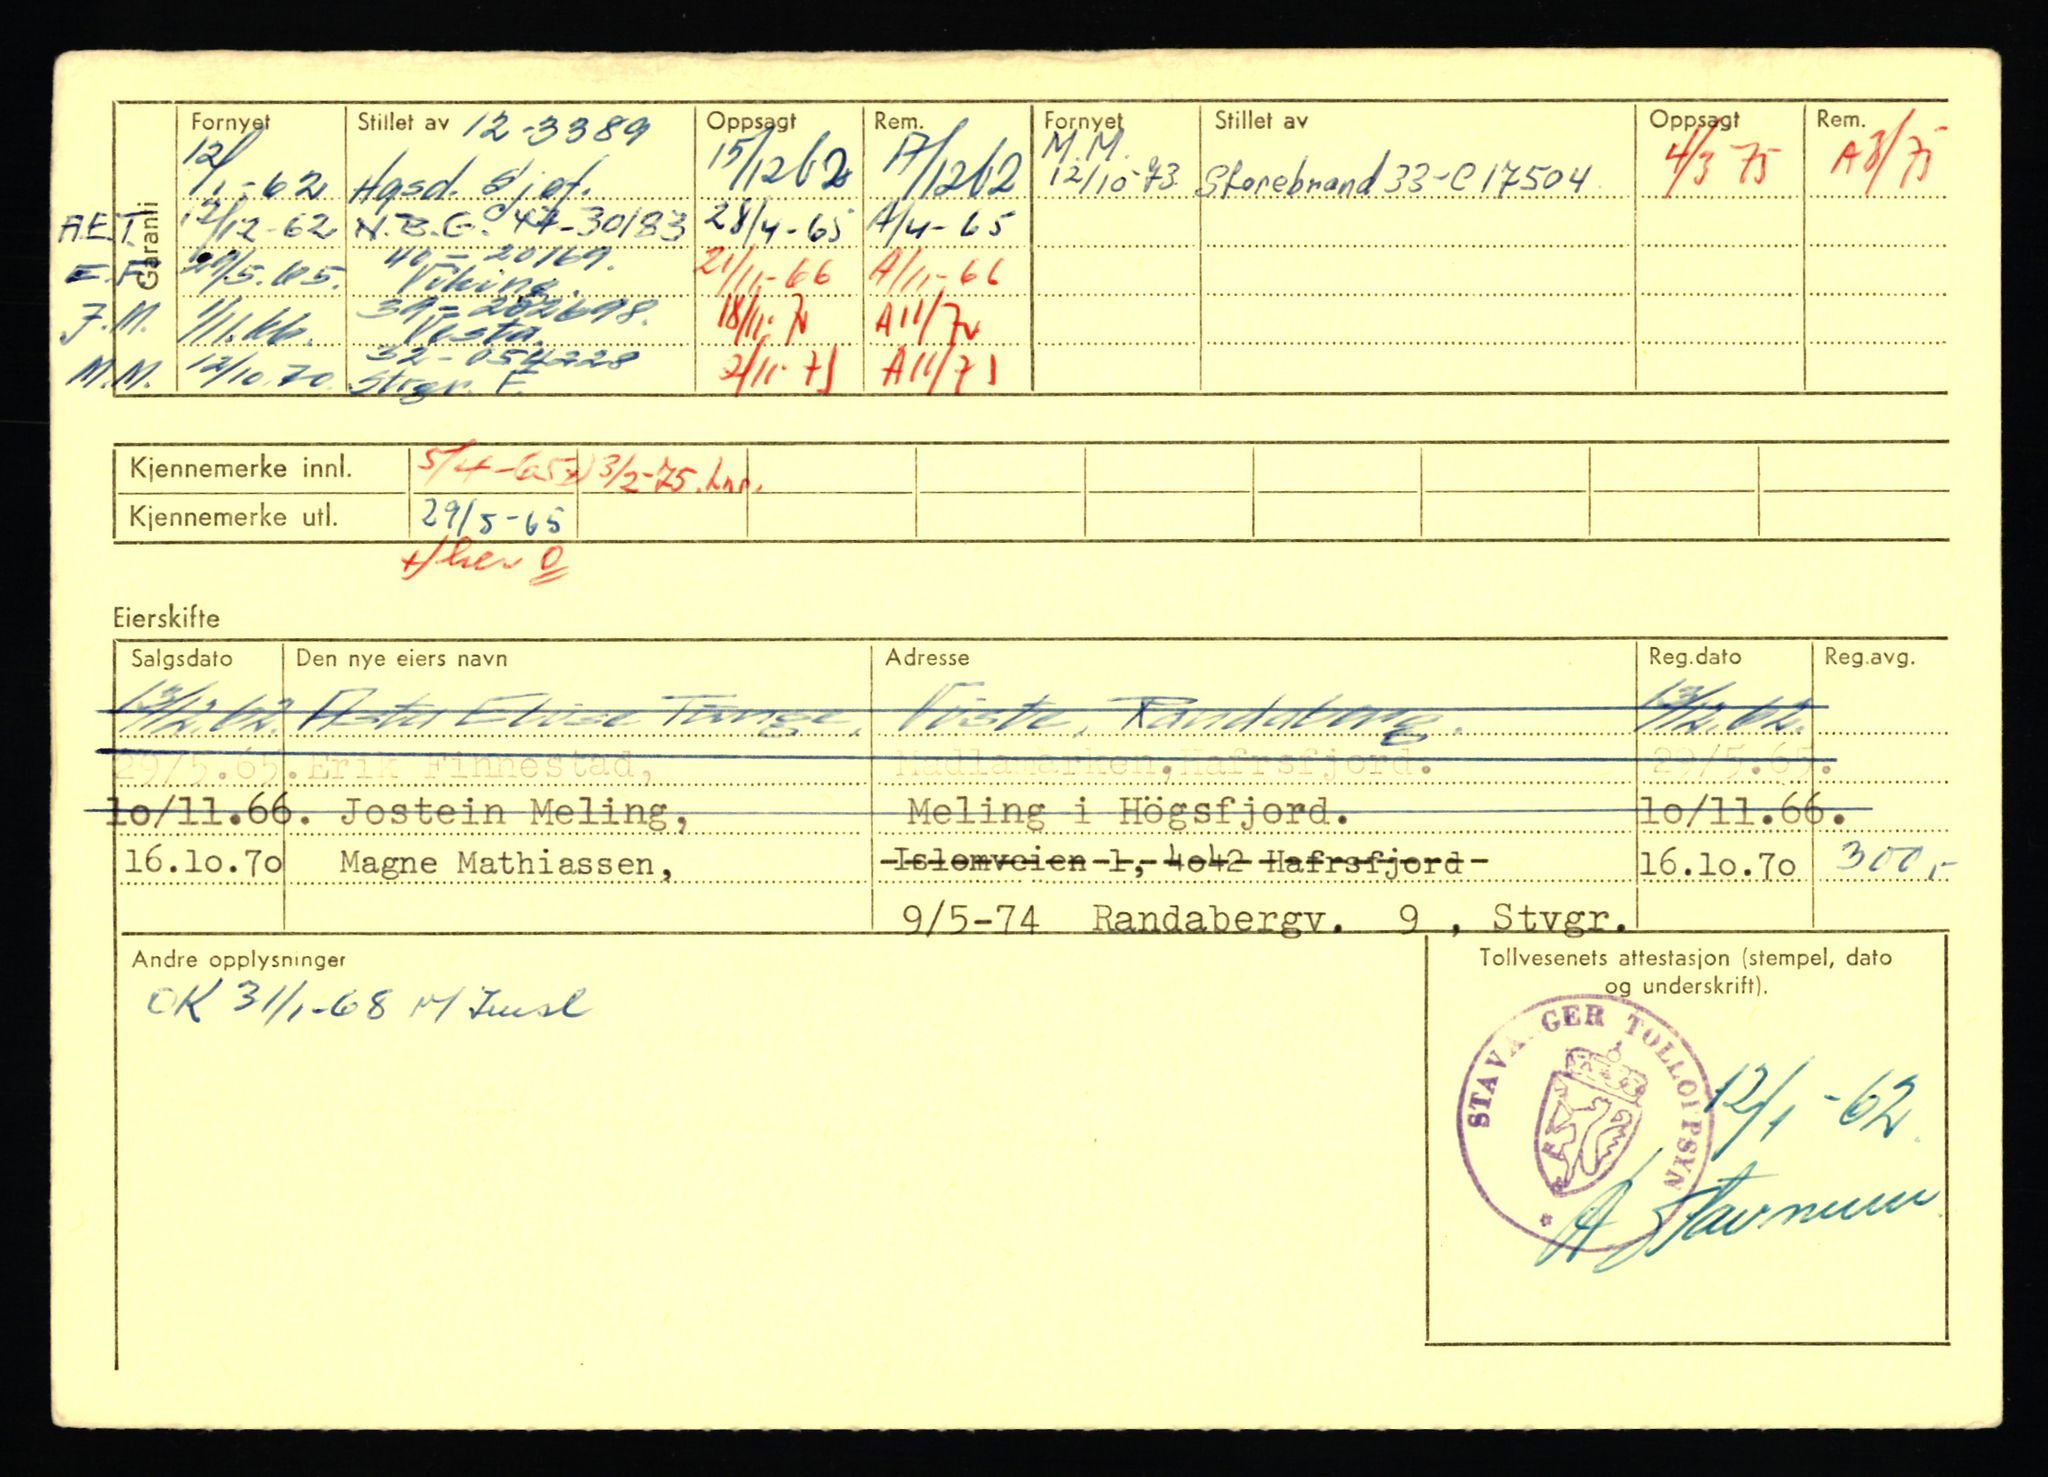 Garanti
Fornyet Stillet av 12-3389 Oppsagt Rem. Fornyet Stillet av Oppsagt Rem.
12/1-62 Hgsd. Sjøf. 15/12 62 17/12 62 M.M. 12/10-73 Storebrand 33-C17504 4/3 75 A3/75
A.E.T. 17/12-62 N.B.G. 47-30183 28/4-65 A/4-65
E.F. 29/5.65. 40,-20169. Viking. 21/11-66 A/11-66
J.M. 1/11.66. 39-202698. Vesta. 18/11-70 A11/70
M.M. 12/10.70. 32-054228 Stvgr. F. 2/11-73 A11/73
Kjennemerke innl. 5/4-65 x) 3/2-75.
Kjennemerke utl. 29/5-65
x) her 0
Eierskifte
Salgsdato Den nye eiers navn Adresse Reg.dato Reg.avg.
13/12.62. Asta Elise Tunge, Viste, Randaberg. 13/12.62.
29/5.65. Erik Finnestad, Madlamarken, Hafrsfjord. 29/5.65.
10/11.66. Jostein Meling, Meling i Högsfjord. 10/11.66.
16.10.70 Magne Mathiassen, Islomveien 1, 4042 Hafrsfjord 16.10.70 300,-
9/5-74 Randabergv. 9 , Stvgr.
Andre opplysninger
OK 31/1-68
Tollvesenets attestasjon (stempel, dato
og underskrift).
STAVANGER TOLLOPPSYN
12/1-62
A. Stavnum